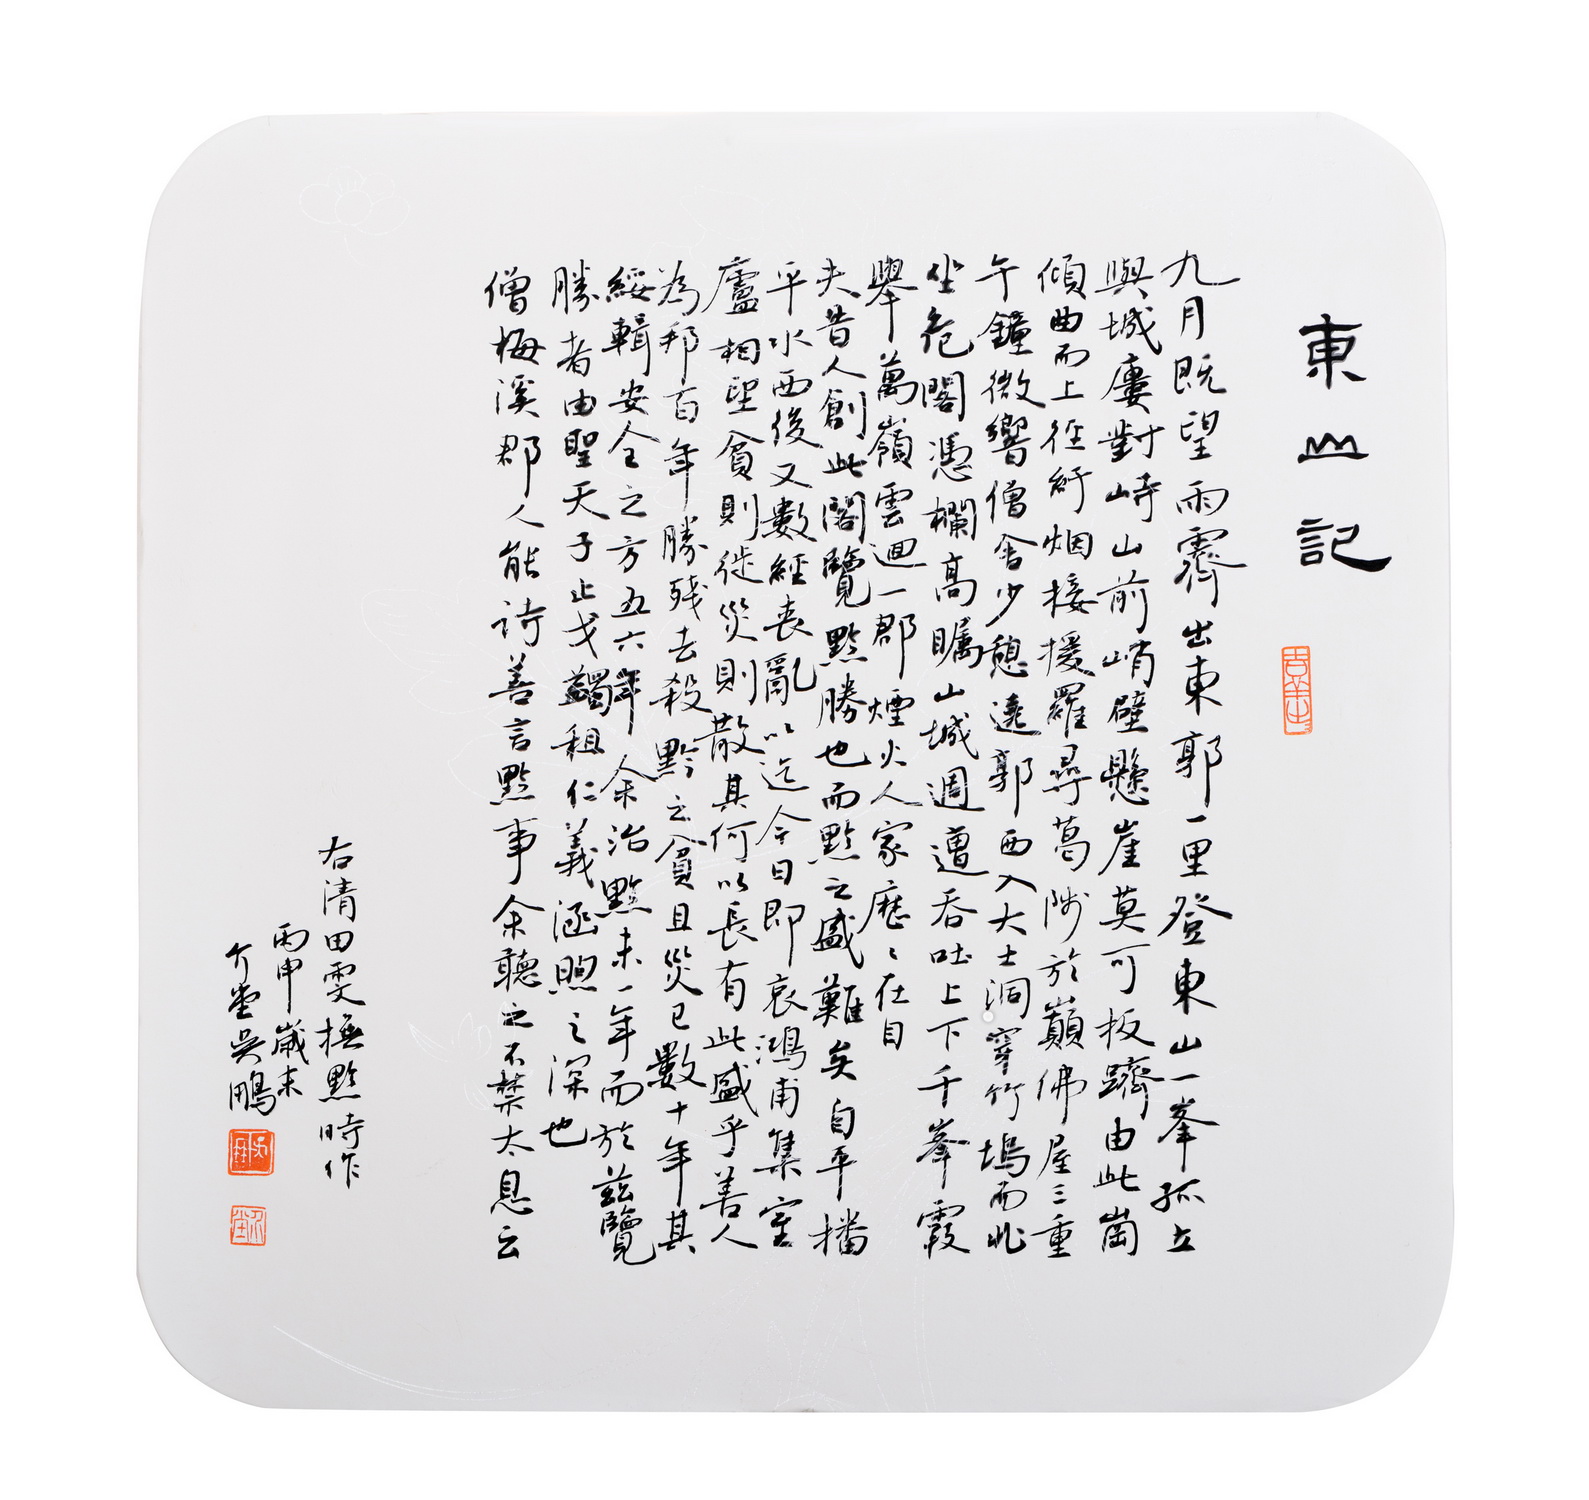 東山記
九月既望雨霽出東郭一里登東山一峯孤立
與城廔對峙山前峭壁懸崖莫可扳躋由此崗
傾曲而上徑紆烟接援羅尋葛陟於巔佛屋三重
午鐘微響僧舍少憩遶郭西入大士洞穿竹塢而北
坐危閣憑欄高矚山城週遭吞吐上下千峯霞
舉萬嶺雲迴一郡煙火人家歷〻在目
夫昔人創此閣覽黟勝也而黟之盛難矣自平播
平水西後又數經喪亂以迄今日即哀鴻甫集室
廬相望貧則徙災則散其何以長有此盛乎善人
為邦百年勝殘去殺黔之貧且災已數十年其
綏輯安全之方五六年余治黟未一年而於茲覽
勝者由聖天子止戈蠲租仁義涵煦之深也
僧梅溪郡人能詩善言黟事余聽之不禁太息云
右清田雯撫黔時作
丙申歲末
介堂吳鵬